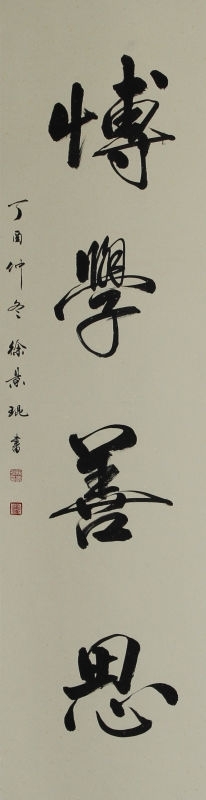 博學善思
丁酉仲冬徐景琨書